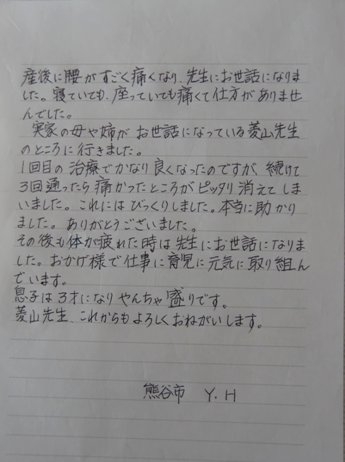 産後に腰がすごく痛くなり、先生にお世話になりま
した。寝ていても、座っていても痛くて仕方がありませ
んでした。
実家の母や姉がお世話になっている菱山先生
のところに行きました。
1回目の治療でかなり良くなったのですが、続けて
3回通ったら痛かったところがピッタリ消えてしま
いました。これにはびっくりしました。本当に助かり
ました。ありがとうございました。
その後も体が疲れた時は先生にお世話になりま
した。おかげ様で仕事に育児に元気に取り組ん
でいます。
息子は3才になりやんちゃ盛りです。
菱山先生、これからもよろしくおねがいします。
熊谷市 Y.H